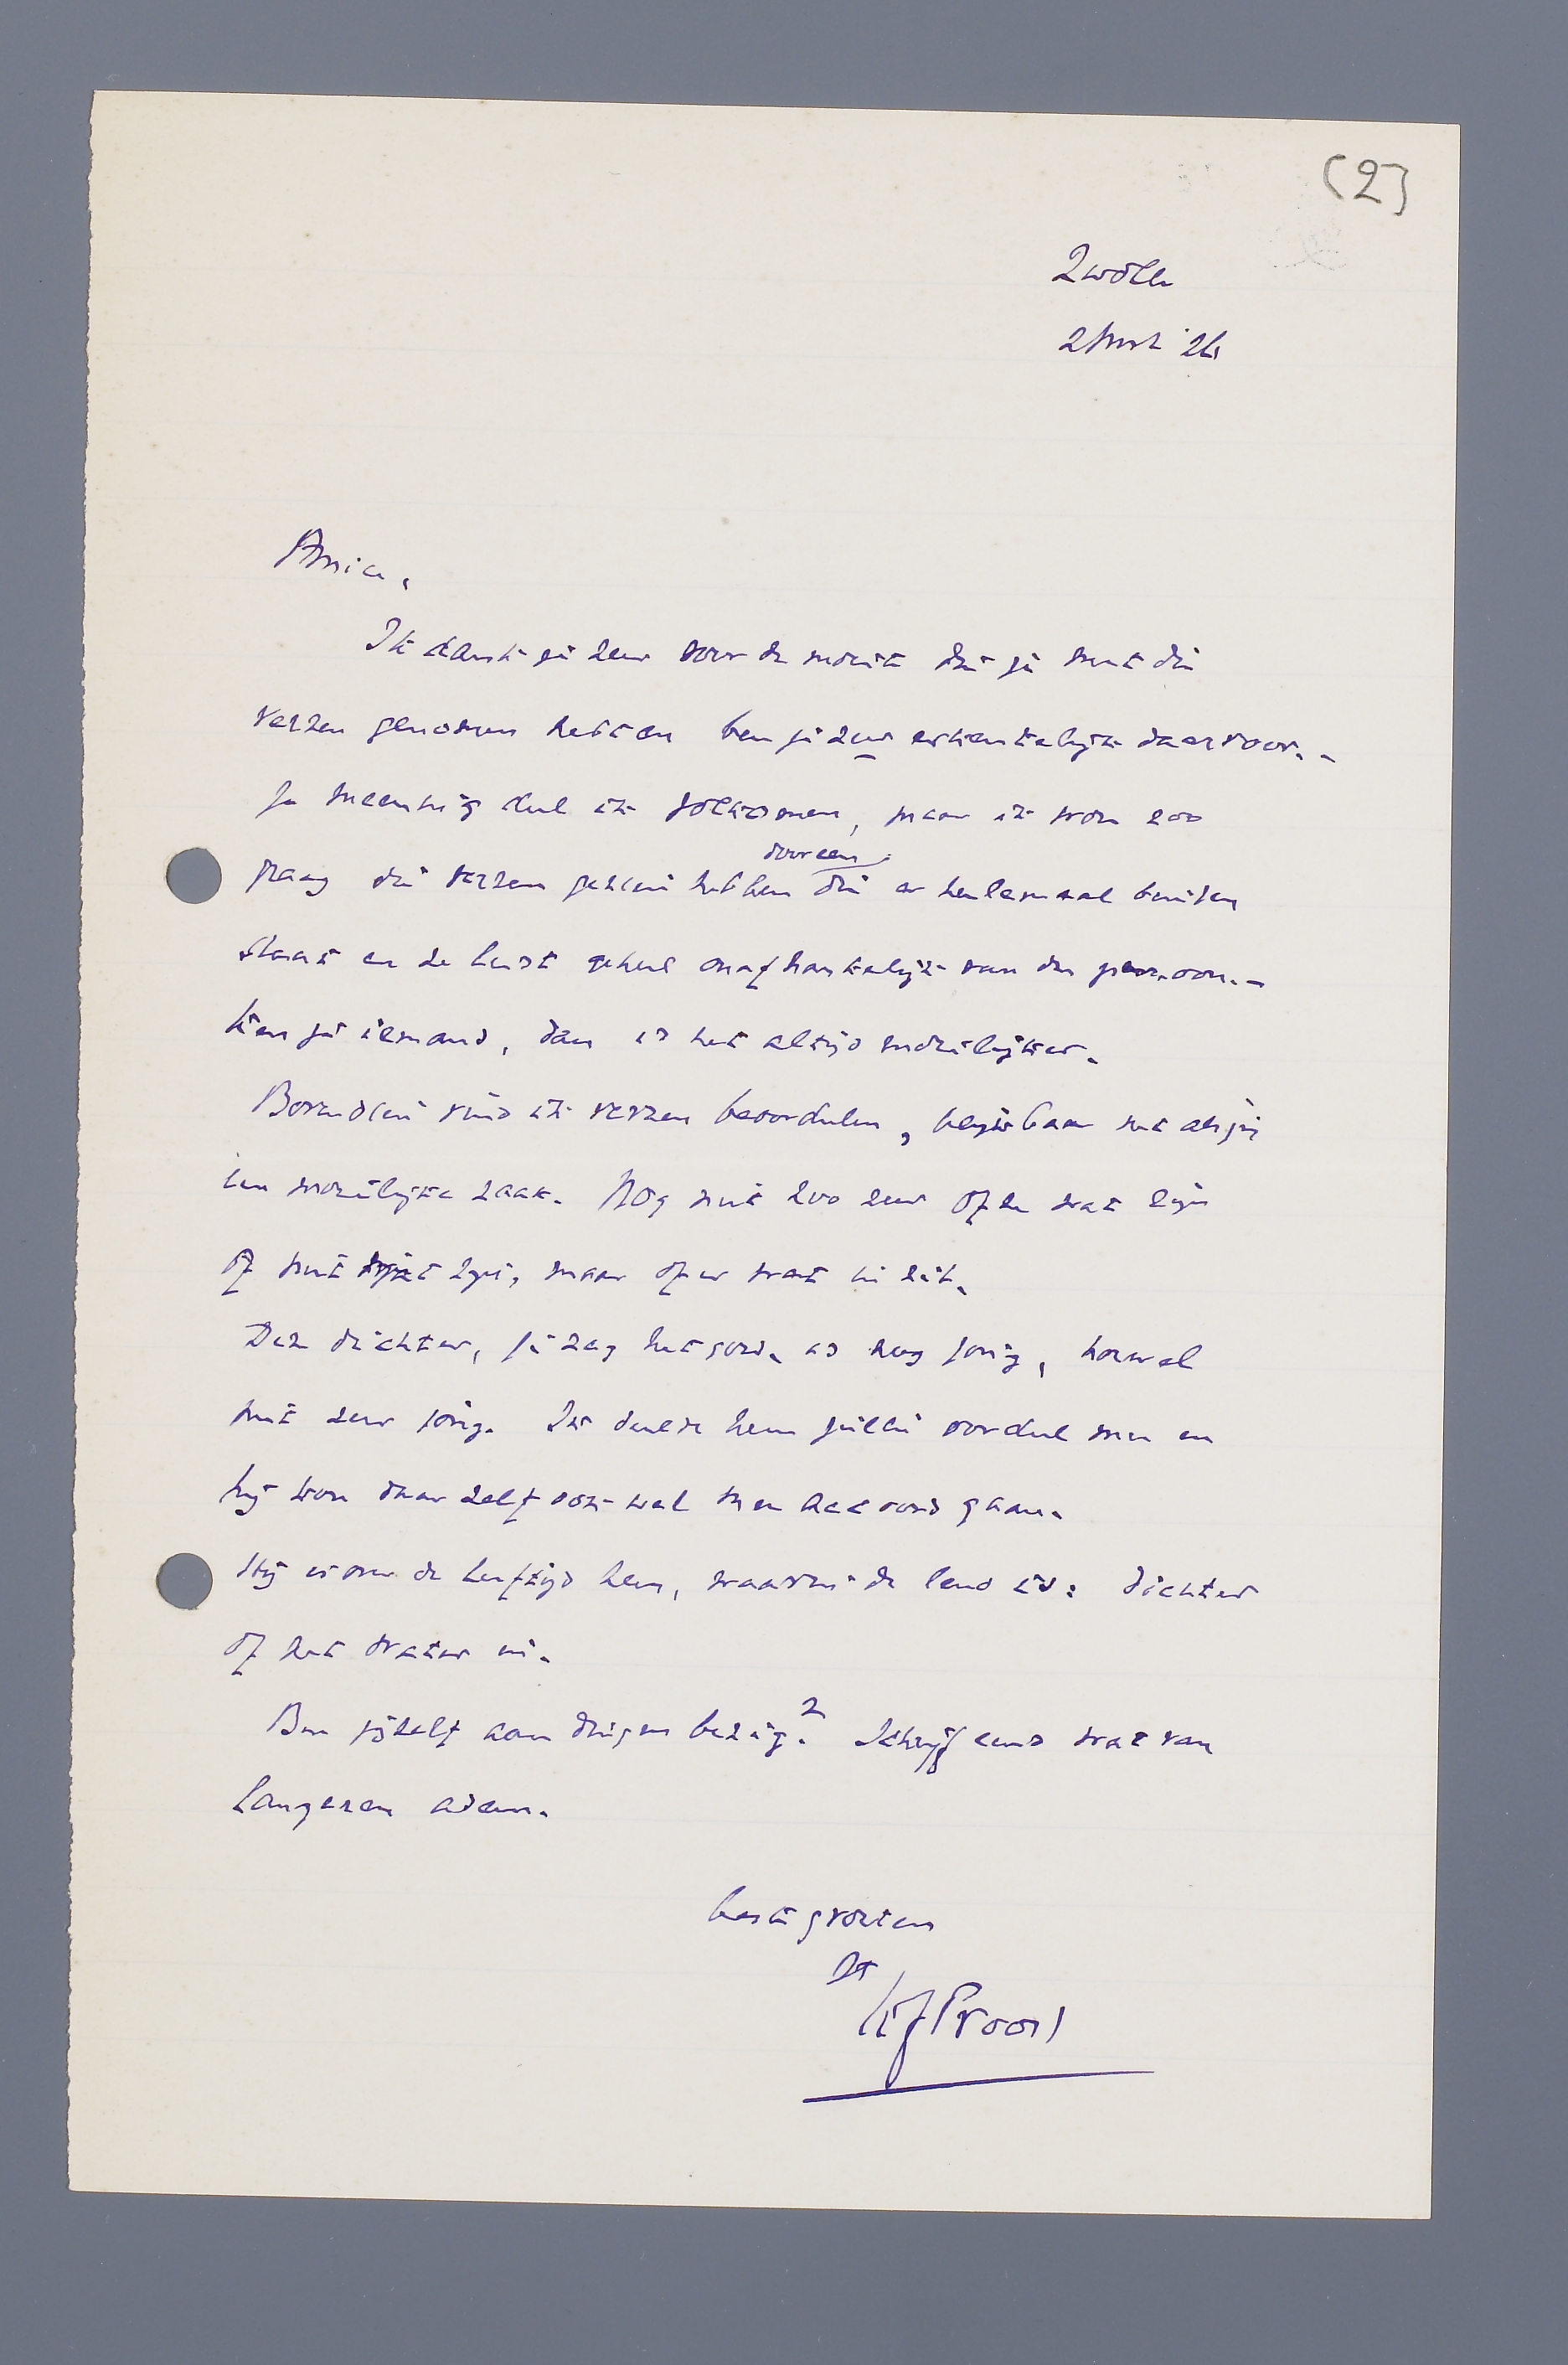 (2)
Zwolle
2 Mrt '26
Amice,
Ik dank je zeer voor de moeite die je met die
verzen genomen hebt en ben je zeer erkentelijk daarvoor. -
Je meening deel ik volkomen, maar ik wou zoo
graag die verzen gezien hebben door een die er heelemaal buiten
staat en ze leest geheel onafhankelijk van den persoon. -
Ken je iemand, dan is het altijd moeilijker.
Bovendien vind ik verzen beoordeelen, blijkbaar net als jij
een moeilijke zaak. Nog niet zoo zeer of ze wat zijn
of niet zijn, maar of er wat in zit.
Deze dichter, je zag het goed, is nog jong, hoewel
niet zeer jong. Ik deelde hem jullie oordeel mee en
hij kon daar zelf ook wel mee accoord gaan.
Hij is over de leeftijd heen, waarin de leus is: dichter
of het water in.
Ben jijzelf aan dingen bezig? Schrijf eens wat van
langeren adem.
beste groeten